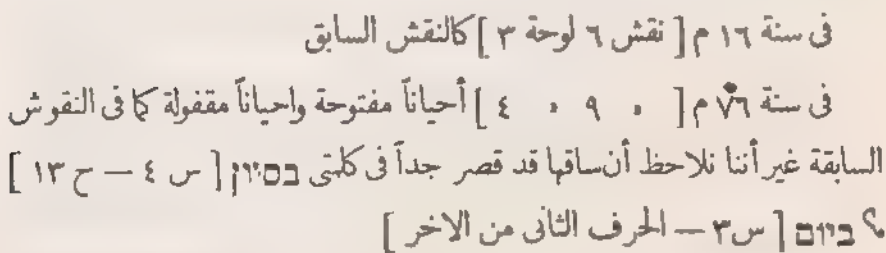 فى سنة ١٦ م [ نقش ٦ لوحة ٣ ] كالنقش السابق
فى سنة ٧٦ م [ » ٩ » ٤ ] أحياناً مفتوحة واحياناً مقفولة كما فى النقوش
السابقة غير أننا نلاحظ أن ساقها قد قصر جداً فى كلمتى בסיון [ س ٤ — ح ١٣ ]
ביום [ س ٣ — الحرف الثانى من الاخر ]